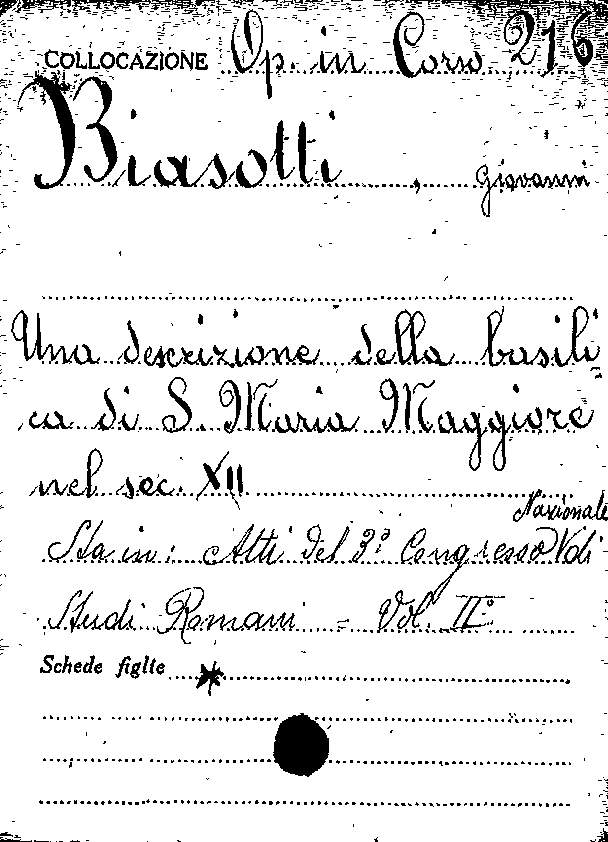 COLLOCAZIONE Op. in Corso 216
Biasotti, Giovanni
Una descrizione della basili-
ca di S. Maria Maggiore
nel sec. XII
Nazionale
Sta in: Atti del 3º Congresso V di
Studi Romani - Vol. IIº
Schede figlie *